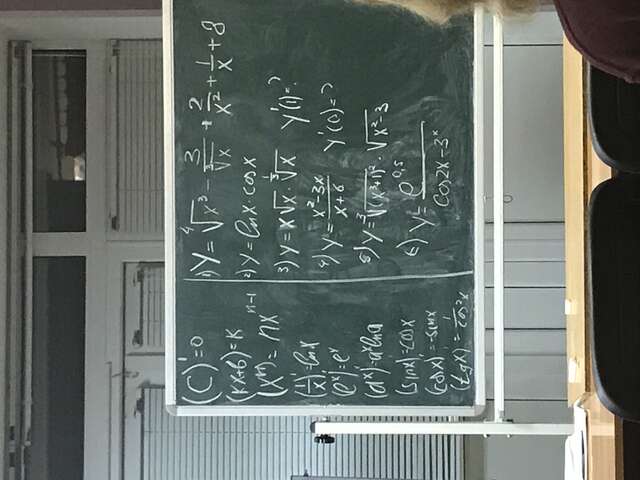 (C)' = 0
(kx+b)' = k
(xⁿ)' = nxⁿ⁻¹
(1/x)' = lnx
(eˣ)' = eˣ
(aˣ)' = aˣ lna
(sinx)' = cosx
(cosx)' = -sinx
(tgx)' = 1/cos²x
1) y = ⁴√x³ - 3/³√x + 2/x² + 1/x + 8
2) y = lnx · cosx
3) y = x√x · ³√x y'(1) = ?
4) y = (x²-3x)/(x+6) y'(0) = ?
5) y = ³√(x³+1)² · √x²-3
6) y = e^0,5/(cos2x - 3ˣ)